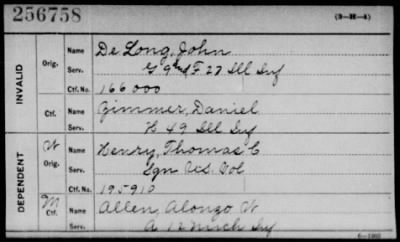 256758
(3-H-4)
INVALID
Orig.
Name De Long, John
Serv. G 9 and F 27 Ill Inf
Ctf. No. 166000
Ctf.
Name Zimmer, Daniel
Serv. H 49 Ill Inf
DEPENDENT
W
Orig.
Name Henry, Thomas C
Serv. Sgn U.S. Vol
Ctf. No. 195910
M
Ctf.
Name Allen, Alonzo W
Serv. A 12 Mich Inf